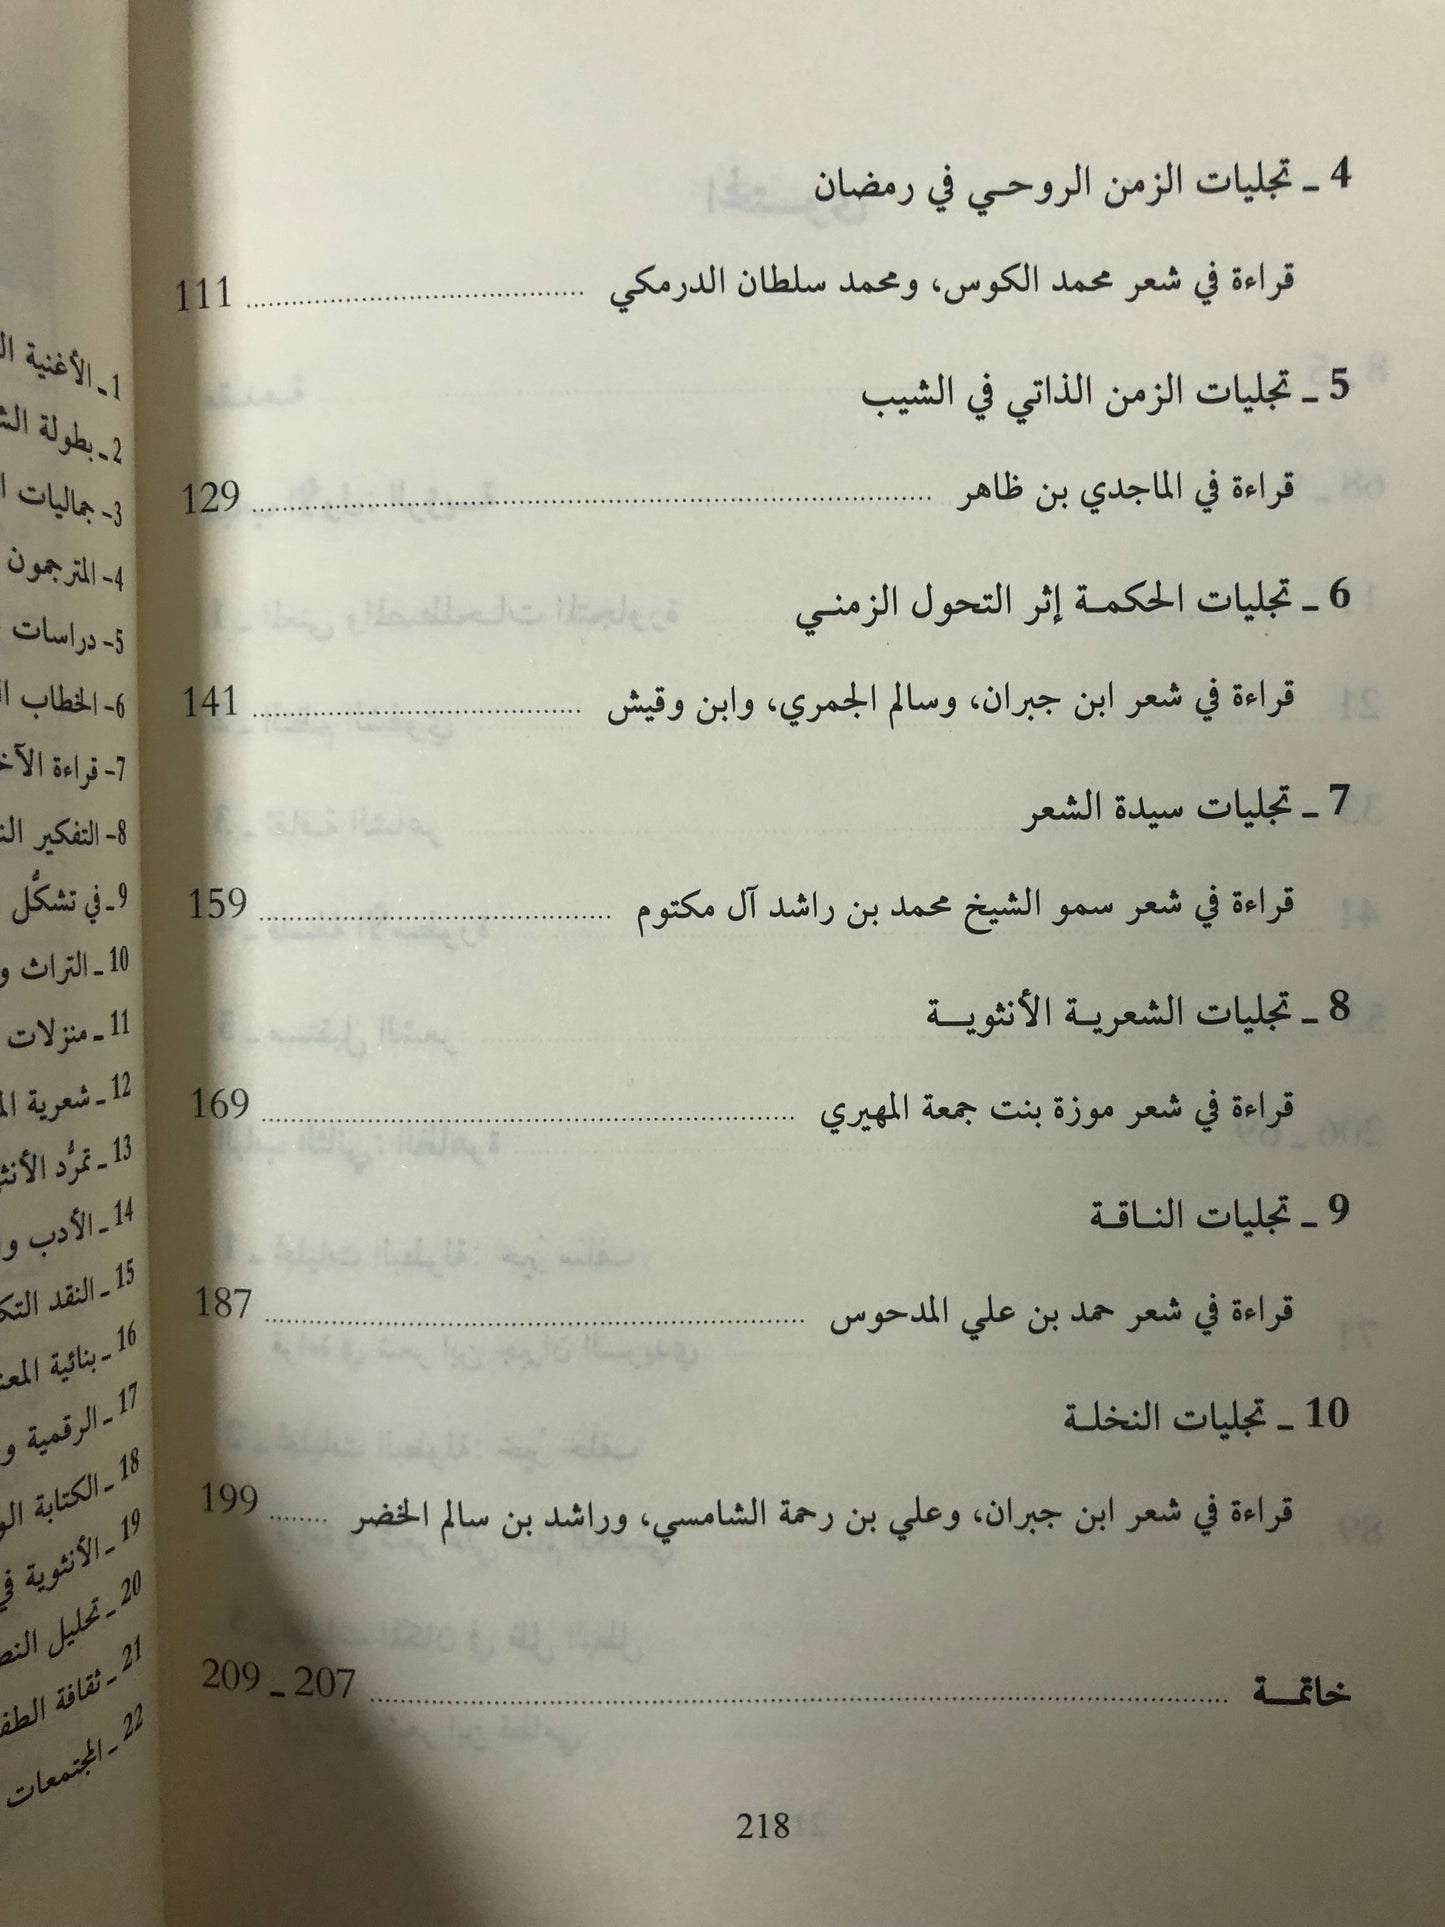 4 ـ تجليات الزمن الروحي في رمضان
قراءة في شعر محمد الكوس، ومحمد سلطان الدرمكي ........ 111
5 ـ تجليات الزمن الذاتي في الشيب
قراءة في الماجدي بن ظاهر ........ 129
6 ـ تجليات الحكمة إثر التحول الزمني
قراءة في شعر ابن جبران، وسالم الجمري، وابن وقيش ........ 141
7 ـ تجليات سيدة الشعر
قراءة في شعر سمو الشيخ محمد بن راشد آل مكتوم ........ 159
8 ـ تجليات الشعرية الأنثوية
قراءة في شعر موزة بنت جمعة المهيري ........ 169
9 ـ تجليات الناقة
قراءة في شعر حمد بن علي المدحوس ........ 187
10 ـ تجليات النخلة
قراءة في شعر ابن جبران، وعلي بن رحمة الشامسي، وراشد بن سالم الخضر ........ 199
خاتمة ........ 207 ـ 209
218
1 ـ الأغنية
2 ـ بطولة
3- جماليات
4- المترجمون
5- دراسات
6- الخطاب
7- قراءة
8- التفكير
9 ـ في تشكُّل
10 ـ التراث و
11 ـ منزلات
12 ـ شعرية
13 ـ تمرُّد
14 ـ الأدب
15 ـ النقد
16 ـ بنائية
17 ـ الرقمية و
18 ـ الكتابة
19 ـ الأنثوية في
20 ـ تحليل
21 ـ ثقافة
22 ـ المجتمعات